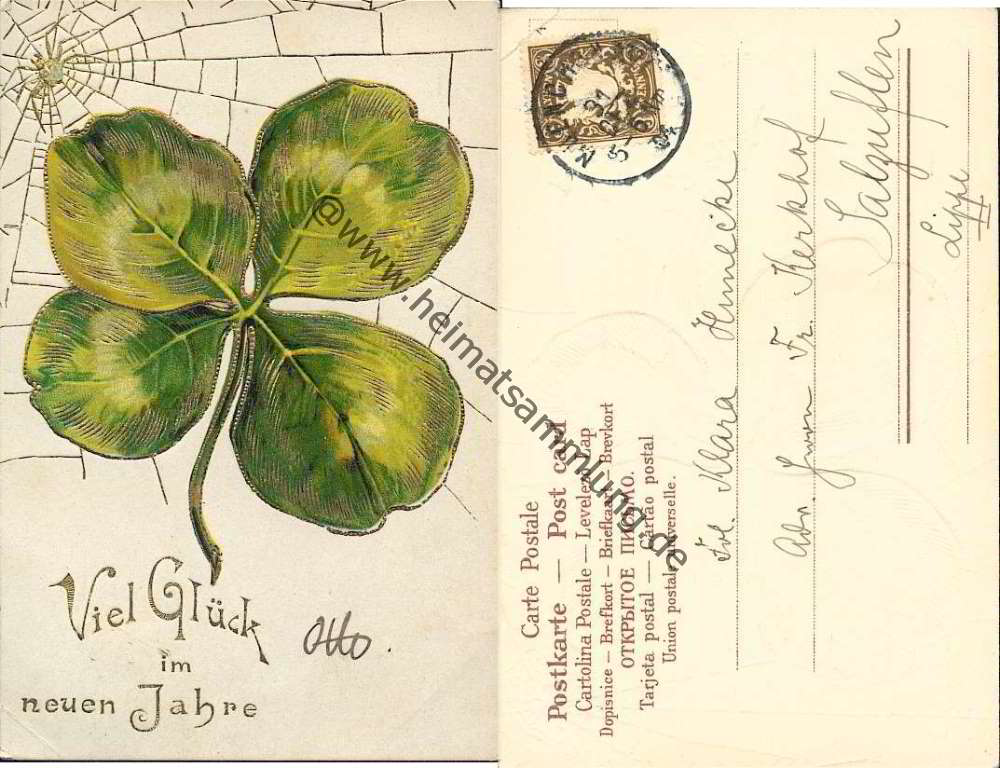 Viel Glück
im
neuen Jahre
Otto.
@www.heimatsammlung.de
Carte Postale
Postkarte — Post card
Cartolina Postale — Levelező-Lap
Dopisnice — Brefkort — Briefkaart — Brevkort
ОТКРЫТОЕ ПИСЬМО.
Tarjeta postal — Cartão postal
Union postale universelle.
Frl. Klara
Adr. Fr. Kerkhof
Salzuflen
Lippe